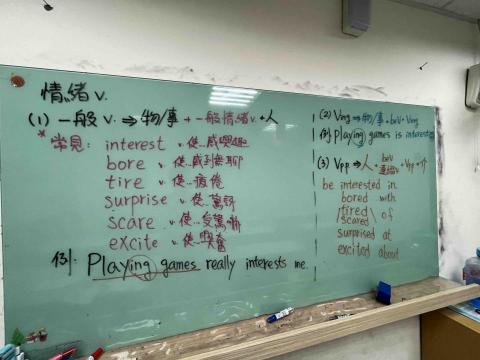 情緒 v.
(1) 一般 v. ⇒ 物/事 + 一般情緒 v. + 人
*常見: interest v. 使…感興趣
bore v. 使…感到無聊
tire v. 使…疲倦
surprise v. 使…驚訝
scare v. 使…受驚嚇
excite v. 使…興奮
例: Playing games really interests me.
(2) Ving ⇒ 物/事 + beV + Ving
例 playing games is interesting
(3) Vpp ⇒ 人 + beV + Vpp + 介
be interested in
bored with
tired
scared of
surprised at
excited about